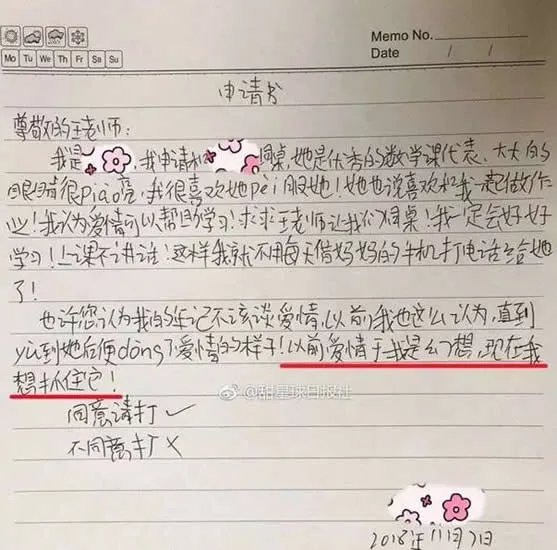 Memo No.
Mo Tu We Th Fr Sa Su
Date / /
申请书
尊敬的王老师：
我是 ，我申请和 同桌，她是优秀的数学课代表、大大的
眼睛很piao亮，我很喜欢她pei服她！她也说喜欢和我一起做作
业！我认为爱情可以帮助学习！求求王老师让我们同桌！我一定会好好
学习！上课不讲话！这样我就不用每天借妈妈的手机打电话给她
了！
也许您认为我的年记不该谈爱情，以前我也这么认为，直到
yu到她后便dong了爱情的样子！以前爱情于我是幻想，现在我
想抓住它！
@甜星球日报社
同意请打✓
不同意打×
2018年11月7日